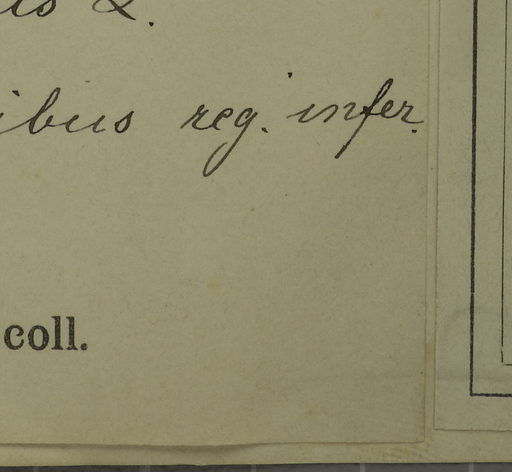 is L.
ibus reg. infer.
coll.